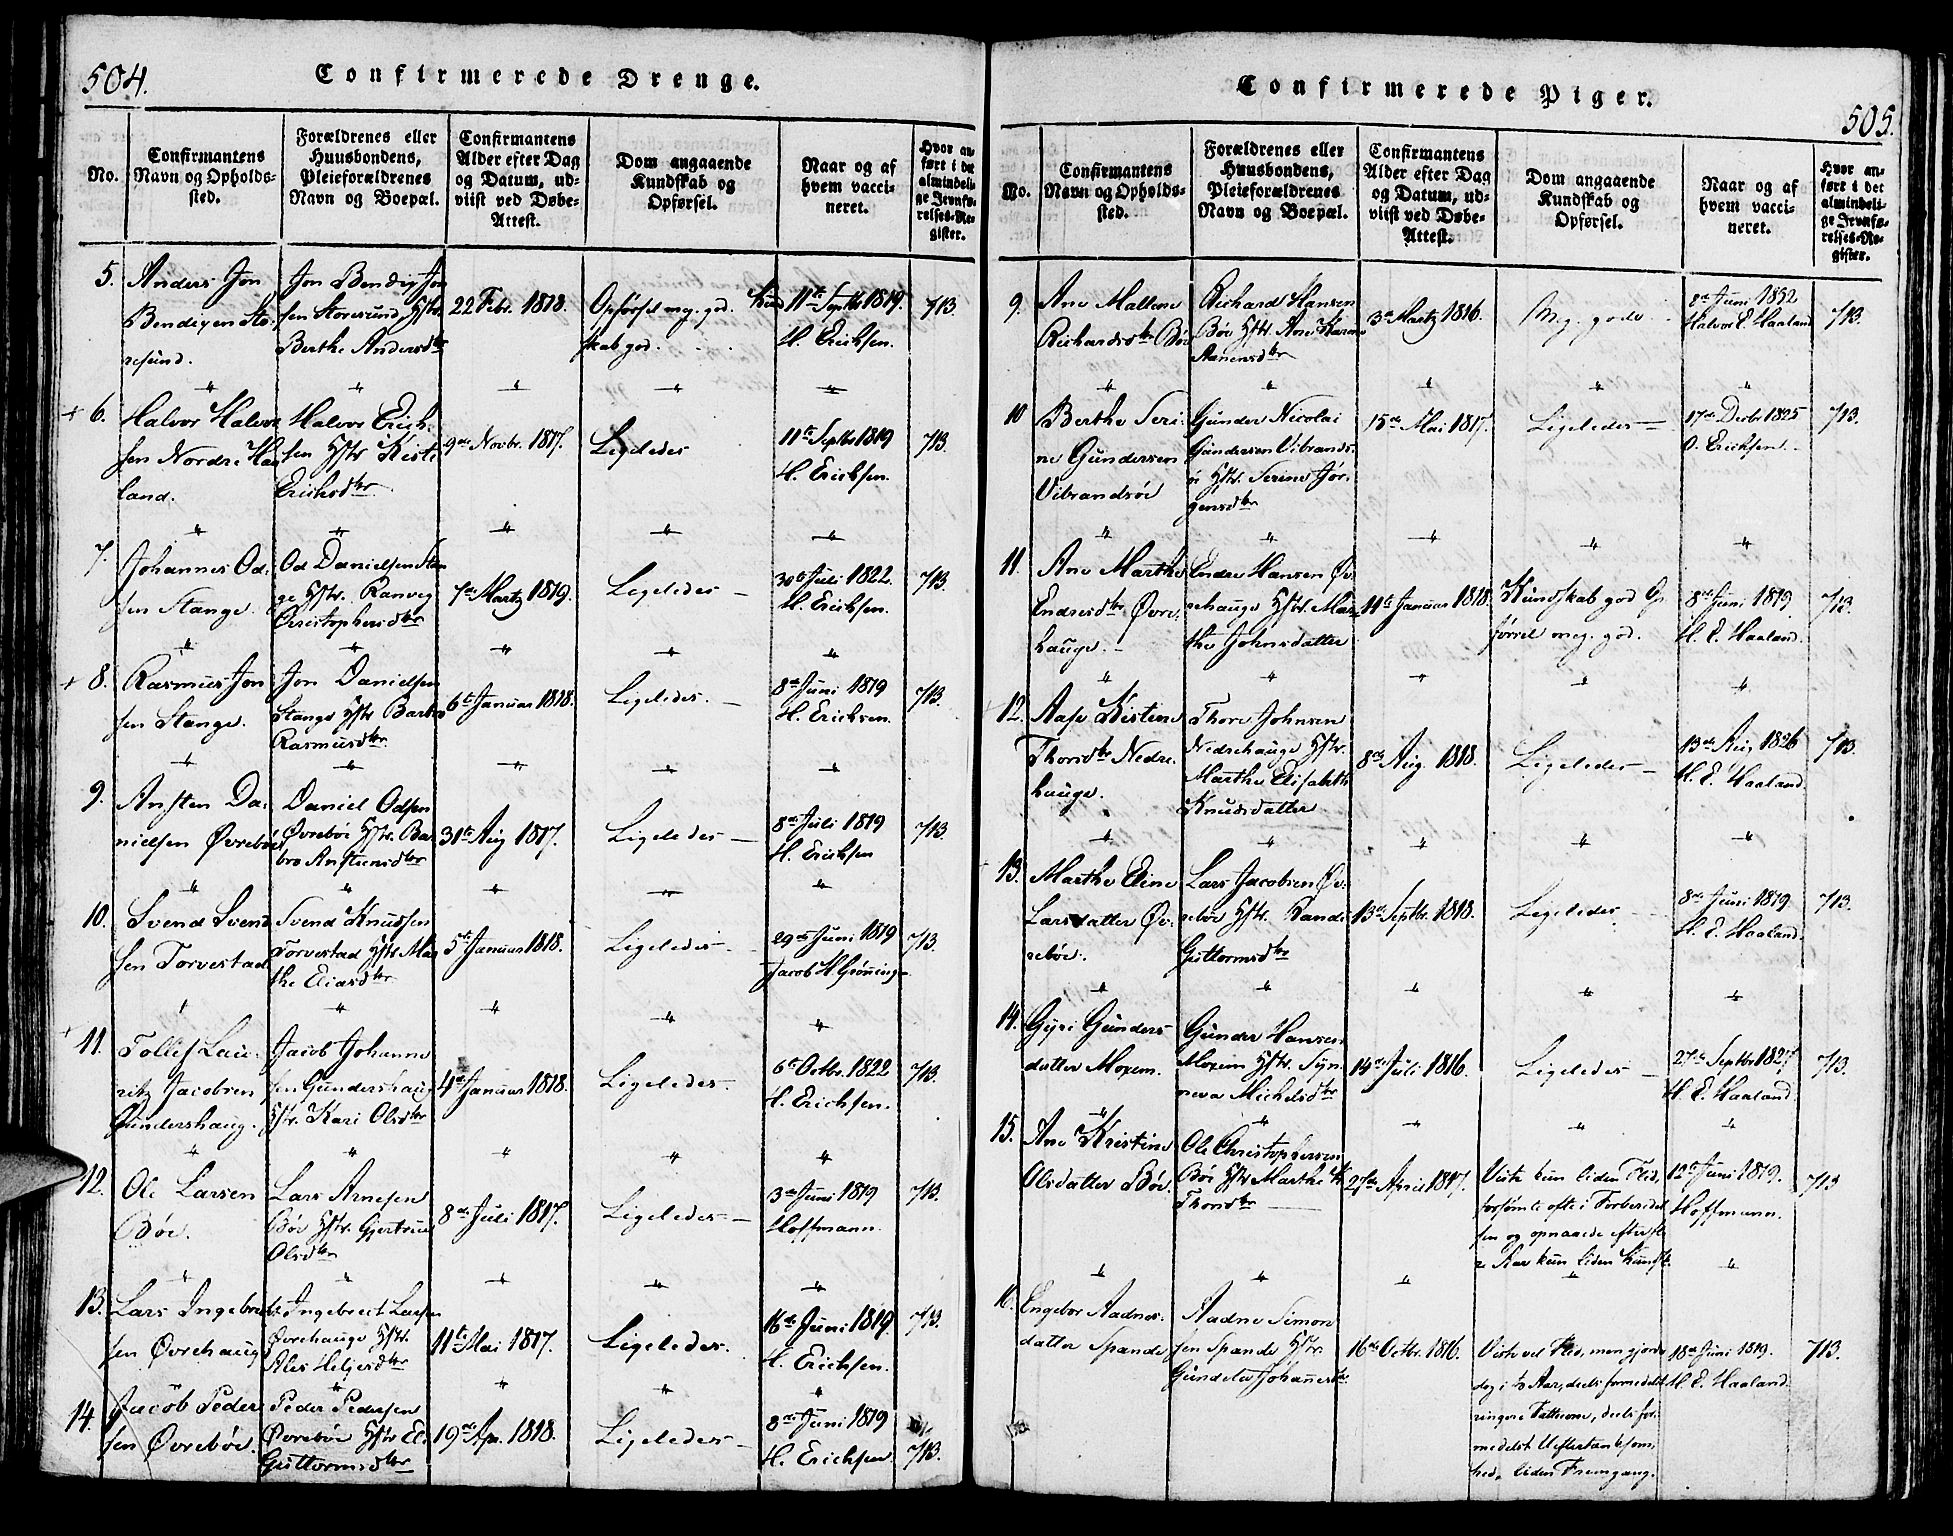 504.
Confirmerede Drenge.
No.
Confirmantens
Navn og Opholds-
sted.
Forældrenes eller
Huusbondens,
Pleieforældrenes
Navn og Boepæl.
Confirmantens
Alder efter Dag
og Datum, ud-
viist ved Døbe-
Attest.
Dom angaaende
Kundskab og
Opførsel.
Naar og af
hvem vacci-
neret.
Hvor an-
ført i det
almindeli-
ge Jevnfø-
relses-Re-
gister.
5.
Anders Jon
Bendixen Sto-
resund.
Jon Bendix Jon
sen Storesund, Hstr.
Berthe Andersdtr
22 Febr. 1818.
Opførsel meg. god. Kund
skab god.
11te Septbr 1819.
H. Erichsen.
713.
6.
Halvor Halvor
sen Nordre Haa
land.
Halvor Erich-
sen Hstr Kisti
Erichsdtr
9de Novbr. 1817.
Ligeledes
11te Septbr 1819
H. Erichsen.
713.
7.
Johannes Od-
sen Stange.
Od Danielsen Stan
ge Hstr. Ranveg
Christophersdtr
7de Martz 1819.
Ligeledes
30te Juli 1822.
H. Erichsen.
713.
8.
Rasmus Jon
sen Stange.
Jon Danielsen
Stange Hstr Barbro
Rasmusdtr
6te Januar 1818.
Ligeledes.
8de Juni 1819
H. Erichsen.
713.
9.
Ansten Da-
nielsen Øvrebøe
Daniel Odsen
Øvrebøe Hstr Bar
bro Anstensdtr
31te Aug 1817.
Ligeledes
8de Juli 1819
H. Erichsen
713.
10.
Svend Svend
sen Torvestad
Svend Knudsen
Torvestad Hstr Mar
the Eliasdtr
5te Januar 1818.
Ligeledes
29de Juni 1819
Jacob H Grönning
713.
11.
Tollef Lau-
ritz Jacobsen
Gundershaug.
Jacob Johanne
sen Gundershaug
Hstr. Kari Olsdtr
4de Januar 1818.
Ligeledes
6te Octbr. 1822
H. Erichsen.
713.
12.
Ole Larsen
Bøe.
Lars Arnesen
Bøe Hstr. Gjertrud
Olsdtr
8de Juli 1817.
Ligeledes
3de Juni 1819
Hoffmann.
713.
13.
Lars Ingebret
sen Øvrehaug
Ingebrect Larsen
Øvrehauge Hstr
Ales Heljesdtr
11te Mai 1817.
Ligeledes.
16de Juni 1819.
H. Erichsen.
713.
14.
Jacob Peder
sen Øvrebøe.
Peder Pedersen
Øvrebøe Hstr Eli
Guttormsdtr
19de Apr. 1818.
Ligeledes
8de Juni 1819
H. Erichsen
713.
505.
Confirmerede Piger.
No.
Confirmantens
Navn og Opholds-
sted.
Forældrenes eller
Huusbondens,
Pleieforældrenes
Navn og Boepæl.
Confirmantens
Alder efter Dag
og Datum, ud-
viist ved Døbe-
Attest.
Dom angaaende
Kundskab og
Opførsel.
Naar og af
hvem vacci-
neret.
Hvor an-
ført i det
almindeli-
ge Jevnfø-
relses-Re-
gister.
9.
Ane Malene
Richardsdtr Bøe
Richard Hansen
Bøe Hstr. Ane Karine
3de Martz 1816.
Meg. gode
8de Juni 1832
Halvor E. Haaland
713.
10
Berthe Seri-
ne Gundersen
Vibrandsøe
Gunder Nicolai
Gundersen Vibrands-
ø Hstr. Serine Jør-
gensdtr
15de Mai 1817.
Ligeledes
17de Decbr 1825
O. Erichsen.
713.
11.
Ane Marthe
Endresdtr Øvre-
hauge.
Endre Hansen Øv-
rehauge Hstr. Mar
the Johnsdatter
11te Januar 1818.
Kundskab god Op-
førsel meg. god.
8de Juni 1819
H. E. Haaland.
713.
12.
Aase Kistine
Thoresdtr Nedre-
hauge.
Thore Johnsen
Nedrehauge Hstr.
Marthe Elisabeth
Knudsdatter
8de Aug. 1818.
Ligeledes
13de Aug 1826
H. E. Haaland.
713.
13.
Marthe Eline
Larsdatter Øv-
rebøe.
Lars Jacobsen Øv-
rebøe Hstr. Rande
Guttormsdtr
13de Septbr. 1818.
Ligeledes
8de Juni 1819
H. E. Haaland.
713.
14.
Gyri Gunders-
datter Moxem.
Gunder Hansen
Moxem Hstr. Syn-
neva Michelsdtr
14de Juli 1816.
Ligeledes
27de Septbr 1827
H. E. Haaland.
713.
15.
Ane Kristine
Olsdatter Bøe.
Ole Christophersen
Bøe Hstr Marthe K
Thorsdtr
27de April 1817.
Viste kun liden Flid,
forsømte ofte i Forberedel
sen og opnaaede efter fle
re Aar kun liden Kundsk.
12te Juni 1819.
Hoffmann.
713
16.
Engebor Aadnes-
datter Spande
Aadne Simon
sen Spande Hstr.
Gundela Johannesdtr
16de Octbr. 1816.
Viste vel Flid, men gjorde
dog i 3 Aar, deels formedelst
ringere Fatteevne, deels for-
medelst Ueftertanksom-
hed, liden Fremgang.
18de Juni 1819.
H. E. Haaland.
713.